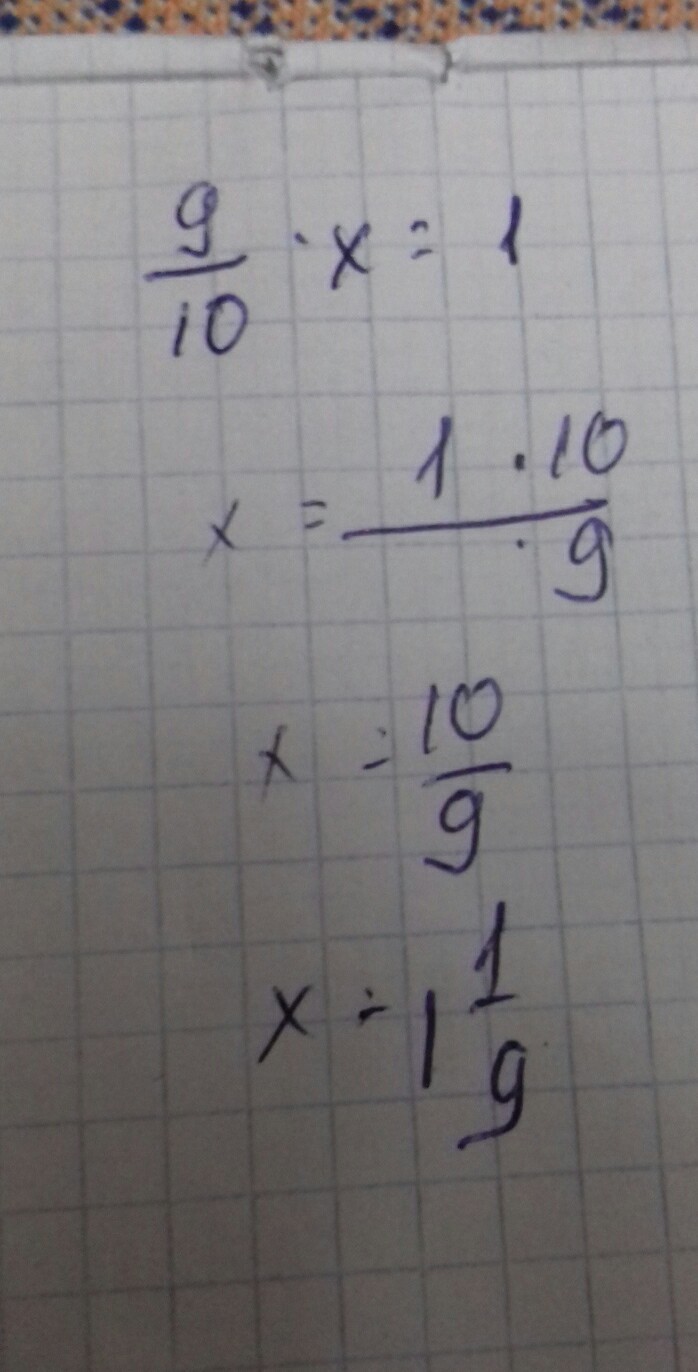 9/10 · x = 1
x = 1 · 10 / · 9
x = 10/9
x = 1 1/9